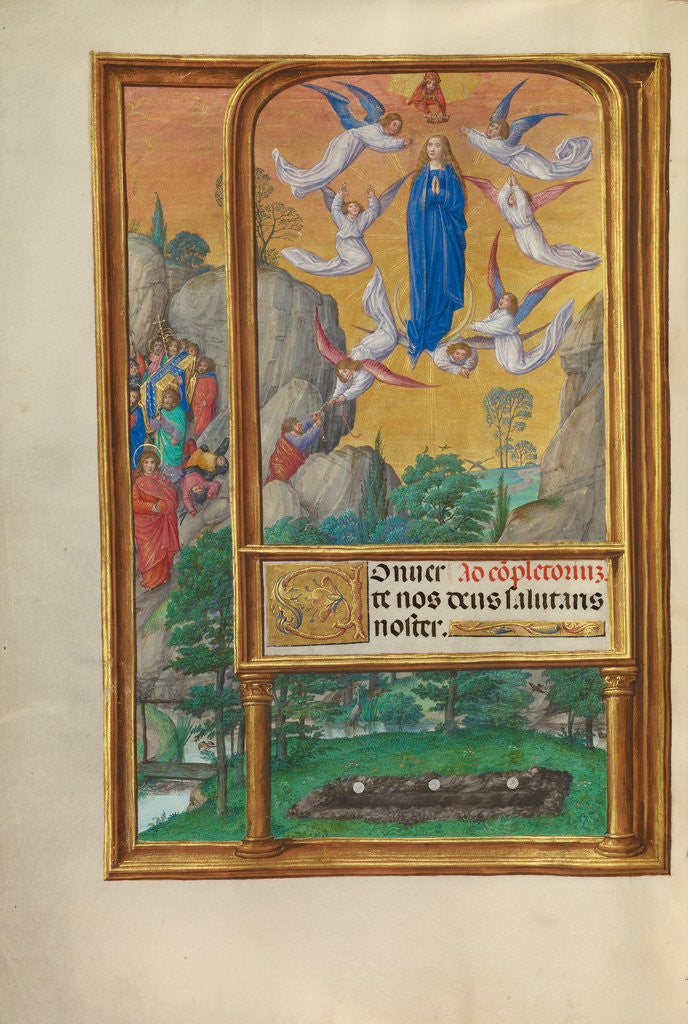 Onuer Ad cōpletoriuz.
te nos deus salutaris
noster.